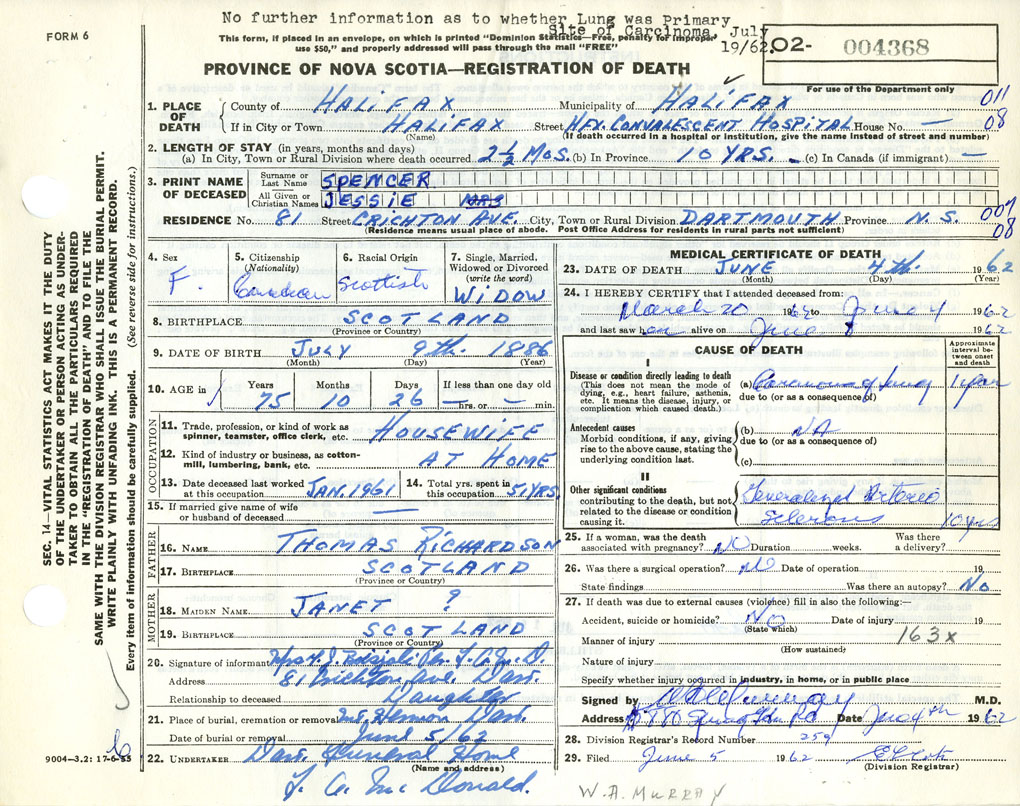 No further information as to whether Lung was Primary
Site of Carcinoma, July
19/62.
FORM 6
This form, if placed in an envelope, on which is printed "Dominion Statistics—Free, penalty for improper
use $50," and properly addressed will pass through the mail "FREE"
O2- 004368
PROVINCE OF NOVA SCOTIA—REGISTRATION OF DEATH
For use of the Department only
1. PLACE OF DEATH
County of HALIFAX Municipality of HALIFAX 011
If in City or Town HALIFAX Street HFX. CONVALESCENT HOSPITAL House No. — 08
(Name) (If death occurred in a hospital or institution, give the name instead of street and number)
2. LENGTH OF STAY (in years, months and days)
(a) In City, Town or Rural Division where death occurred 2½ MOS. (b) In Province 10 YRS. - (c) In Canada (if immigrant) —
3. PRINT NAME OF DECEASED
Surname or Last Name SPENCER
All Given or Christian Names JESSIE MRS
RESIDENCE No. 81 Street CRICHTON AVE. City, Town or Rural Division DARTMOUTH Province N.S. 007
(Residence means usual place of abode. Post Office Address for residents in rural parts not sufficient) 08
4. Sex F.
5. Citizenship (Nationality) Canadian
6. Racial Origin Scottish
7. Single, Married, Widowed or Divorced (write the word) WIDOW
8. BIRTHPLACE SCOTLAND
(Province or Country)
9. DATE OF BIRTH JULY 9th. 1886
(Month) (Day) (Year)
10. AGE in Years 75 Months 10 Days 26 If less than one day old — hrs. or — min.
OCCUPATION
11. Trade, profession, or kind of work as spinner, teamster, office clerk, etc. HOUSEWIFE
12. Kind of industry or business, as cotton-mill, lumbering, bank, etc. AT HOME
13. Date deceased last worked at this occupation JAN. 1961
14. Total yrs. spent in this occupation 51 YRS.
15. If married give name of wife or husband of deceased —
FATHER
16. NAME THOMAS RICHARDSON
17. BIRTHPLACE SCOTLAND
(Province or Country)
MOTHER
18. MAIDEN NAME JANET ?
19. BIRTHPLACE SCOTLAND
(Province or Country)
20. Signature of informant
Address 81 Crichton Ave. Dart.
Relationship to deceased Daughter
21. Place of burial, cremation or removal Mt. Hermon Dart.
Date of burial or removal June 5/62
22. UNDERTAKER Dart. Funeral Home
(Name and address)
L. A. Mc Donald.
MEDICAL CERTIFICATE OF DEATH
23. DATE OF DEATH JUNE 4th. 1962
(Month) (Day) (Year)
24. I HEREBY CERTIFY that I attended deceased from:
March 20 1962 to June 4 1962
and last saw her alive on June 1962
CAUSE OF DEATH
Approximate interval between onset and death
I
Disease or condition directly leading to death
(This does not mean the mode of dying, e.g., heart failure, asthenia, etc. It means the disease, injury, or complication which caused death.)
(a) Carcinoma of lung 1 year
due to (or as a consequence of)
Antecedent causes
Morbid conditions, if any, giving rise to the above cause, stating the underlying condition last.
(b) NA
due to (or as a consequence of)
(c)
II
Other significant conditions
contributing to the death, but not related to the disease or condition causing it.
Generalized Arterio
sclerosis 10 yrs
25. If a woman, was the death associated with pregnancy? NO Duration weeks. Was there a delivery?
26. Was there a surgical operation? NO Date of operation 19
State findings Was there an autopsy? No
27. If death was due to external causes (violence) fill in also the following:—
Accident, suicide or homicide? NO Date of injury 19
(State which)
Manner of injury 163x
(How sustained)
Nature of injury
Specify whether injury occurred in industry, in home, or in public place
Signed by M.D.
Address Date June 4th 1962
28. Division Registrar's Record Number 259
29. Filed June 5 1962
(Division Registrar)
W.A. MURRAY
SEC. 14—VITAL STATISTICS ACT MAKES IT THE DUTY
OF THE UNDERTAKER OR PERSON ACTING AS UNDER-
TAKER TO OBTAIN ALL THE PARTICULARS REQUIRED
IN THE "REGISTRATION OF DEATH" AND TO FILE THE
SAME WITH THE DIVISION REGISTRAR WHO SHALL ISSUE THE BURIAL PERMIT.
WRITE PLAINLY WITH UNFADING INK. THIS IS A PERMANENT RECORD.
Every item of information should be carefully supplied. (See reverse side for instructions.)
9004—3.2: 17-6-55